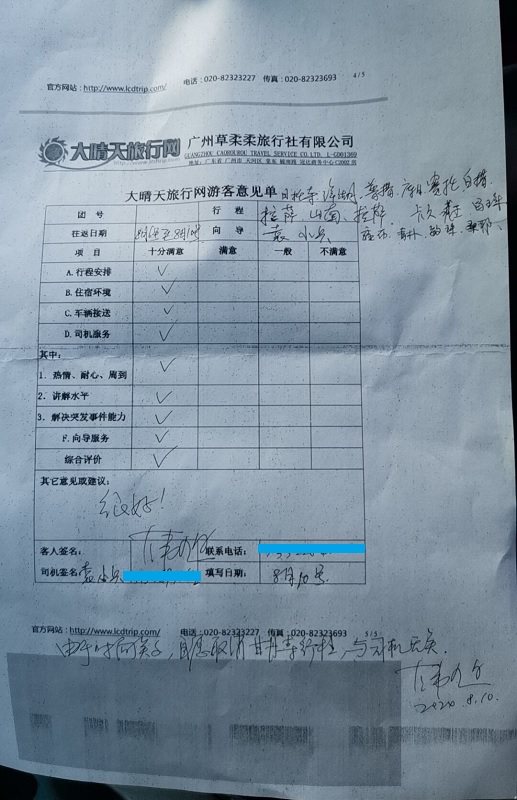 官方网站：http://www.lcdtrip.com/ 电话：020-82323227 传真：020-82323693 4/5
大晴天旅行网 广州草柔柔旅行社有限公司
GUANGZHOU CAOROUROU TRAVEL SERVICE CO.LTD. L-GD01360
大晴天旅行网游客意见单
日托寺
团号 行程 拉萨 山南、拉萨
往返日期 向导 袁小兵
项目 十分满意 满意 一般 不满意
A.行程安排 ✓
B.住宿环境 ✓
C.车辆接送 ✓
D.司机服务 ✓
其中：
1．热情、耐心、周到 ✓
2．讲解水平 ✓
3．解决突发事件能力 ✓
F.向导服务 ✓
综合评价 ✓
其它意见或建议：
很好！
客人签名： 联系电话：
司机签名：袁小兵 填写日期： 8月10号
官方网站：http://www.lcdtrip.com/ 电话：020-82323227 传真：020-82323693 5/5
由于时间关系，自愿取消甘丹寺行程，与司机无关．
2020.8.10.